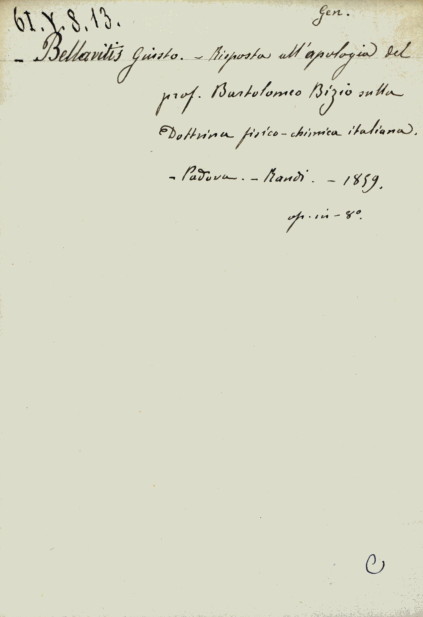 61.X.8.13.
Gen.
- Bellavitis Giusto. - Risposta all'apologia del
prof. Bartolomeo Bizio sulla
Dottrina fisico-chimica italiana.
- Padova. - Randi. - 1859.
op. in-8º.
C